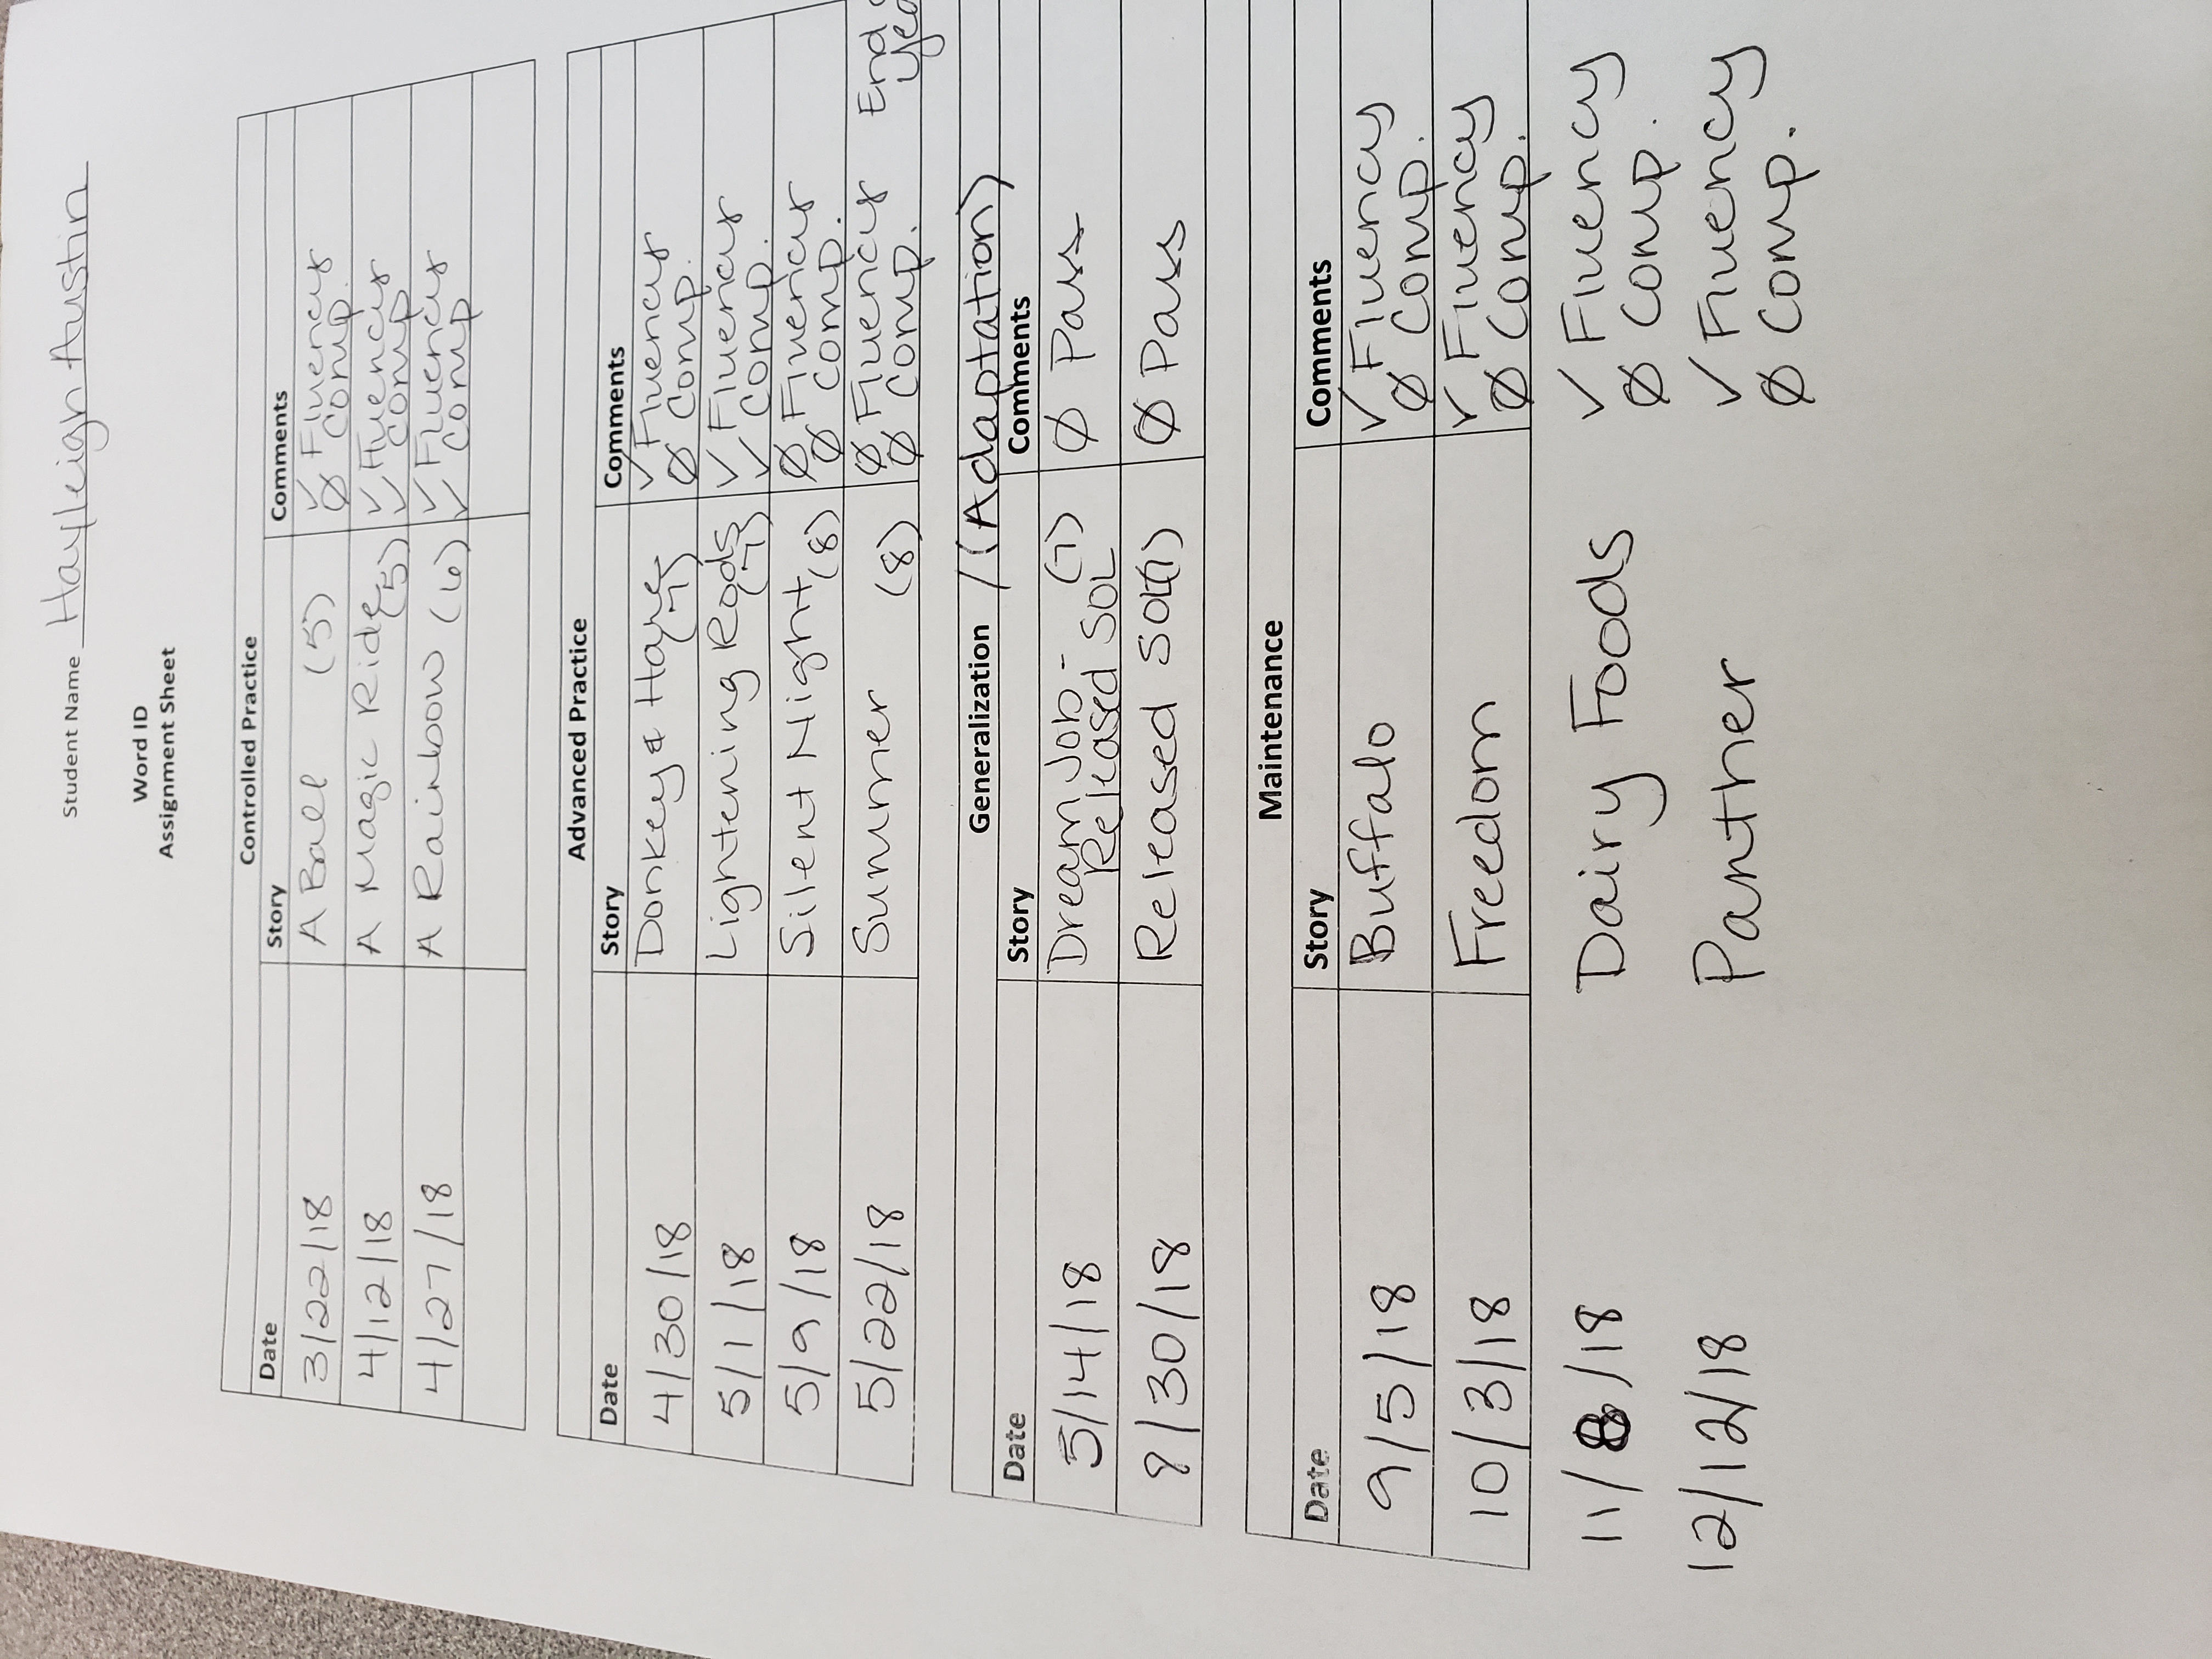 Student Name Hayleigh Austin
Word ID
Assignment Sheet
Controlled Practice
Date Story Comments
3/22/18 A Ball (5) ✓ Fluency
Ø Comp.
4/12/18 A Magic Ride (5) ✓ Fluency
✓ Comp
4/27/18 A Rainbow (6) ✓ Fluency
✓ Comp
Advanced Practice
Date Story Comments
4/30/18 Donkey & Hare (7) ✓ Fluency
Ø Comp.
5/1/18 Lightening Rods (7) ✓ Fluency
✓ Comp.
5/9/18 Silent Night (8) Ø Fluency
Ø Comp.
5/22/18 Summer (8) Ø Fluency End
Ø Comp.
Generalization /(Adaptation)
Date Story Comments
5/14/18 Dream Job - (7) Ø Pass
Released SOL
/30/18 Released SOL Ø Pass
Maintenance
Date Story Comments
9/5/18 Buffalo ✓ Fluency
Ø Comp.
10/3/18 Freedom ✓ Fluency
Ø Comp.
11/8/18 Dairy Foods ✓ Fluency
Ø Comp.
12/12/18 Panther ✓ Fluency
Ø Comp.